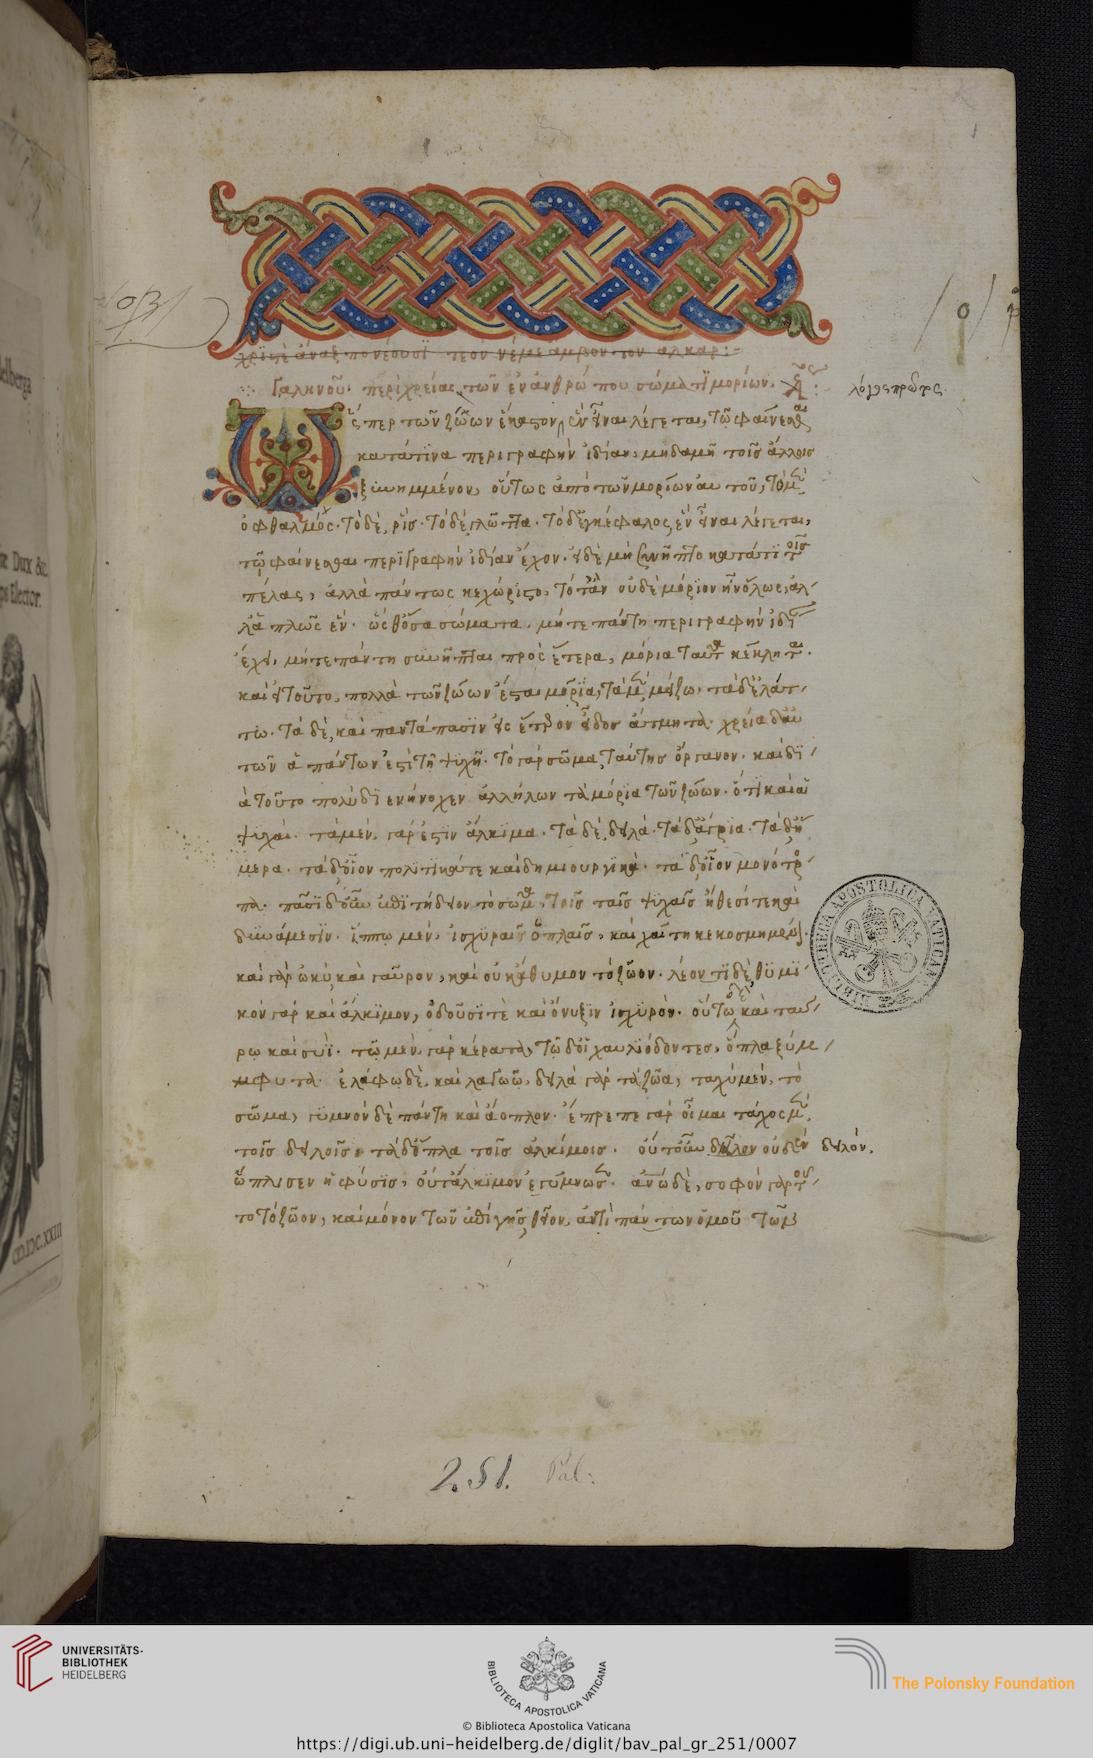 χριστὲ ἄναξ πονέουσϊ τεὸν νέμε
Γαληνοῦ· περὶ χρείας τῶν ἐν ἀνθρώπου σώματϊ μορίων.
λόγος πρῶτος.
Ὥσπερ τῶν ζώων ἕκαστον, ἓν εἶναι λέγεται, τῷ φαίνεσθαι
κατά τϊνα περιγραφὴν ἰδίαν, μηδαμῆ τοῖς ἄλλοις
ξυνημμένον, οὕτως ἀπὸ τῶν μορίων αὐτοῦ, τὸ μὲν
ὀφθαλμός· τὸ δὲ, ῥίς· τὸ δὲ γλῶττα· τὸ δ' ἐγκέφαλος ἓν εἶναι λέγεται,
τῷ φαίνεσθαι περϊγραφὴν ἰδίαν ἔχον· εἰ δὲ μὴ συνῆπτο κατά τϊ τοῖς
πέλας, ἀλλὰ πάντως κεχώριστο, τότ' ἂν οὐδὲ μόρϊον ἦν ὅλως, ἀλ
λ' ἁπλῶς ἕν· ὥς θ' ὅσα σώματα μήτε πάντη περιγραφὴν ἰδίαν
ἔχει, μήτε πάντη συνῆπται πρὸς ἕτερα, μόρια ταῦτα κέκληται·
καὶ εἰ τοῦτο, πολλὰ τῶν ζώων ἔσται μόρϊα, τὰ μὲν μείζω· τὰ δ' ἐλάτ
τω· τὰ δὲ, καὶ παντάπασϊν εἰς ἕτερον εἶδος ἄτμητα· χρεία δ' αὐ
τῶν ἁπάντων ἐστὶ τῇ ψϋχῇ· τὸ γὰρ σῶμα, ταύτης ὄργανον· καὶ δϊ
ὰ τοῦτο πολὺ διενήνοχεν ἀλλήλων τὰ μόρια τῶν ζώων· ὅτϊ καὶ αἱ
ψϋχαί· τὰ μὲν, γάρ ἐστϊν ἄλκϊμα· τὰ δὲ, δειλά· τὰ δ' ἄγρια· τὰ δ' ἥ
μερα· τὰ δ' οἷον πολϊτϊκά τε καὶ δημιουργϊκά· τὰ δ' οἷον μονότρο
πα· πᾶσϊ δ' οὖν ἐπϊτήδειον τὸ σῶμα, τοῖς ταῖς ψϋχαῖς ἤθεσί τε καὶ
δυνάμεσϊν· ἵππῳ μὲν, ἰσχϋραῖς ὁπλαῖς, καὶ χαίτη κεκοσμημένον·
καὶ γὰρ ὠκὺ καὶ γαῦρον, καὶ οὐκ ἄθυμον τὸ ζῶον· λέοντϊ δὲ, θϋμϊ
κὸν γὰρ καὶ ἄλκϊμον, ὀδοῦσί τε καὶ ὄνυξϊν ἰσχϋρόν· οὕτω δὲ καὶ ταύ
ρῳ καὶ συΐ· τῷ μὲν γὰρ κέρατα, τῷ δ' οἱ χαυλιόδοντες, ὅπλα ξύμ
φυτα· ἐλάφῳ δὲ, καὶ λαγωῷ, δειλὰ γὰρ τὰ ζῶα, ταχὺ μὲν, τὸ
σῶμα, γϋμνὸν δὲ πάντη καὶ ἄοπλον· ἔπρεπε γὰρ οἶμαι τάχος μὲν
τοῖς δειλοῖς· τὰ δ' ὅπλα τοῖς ἀλκίμοις· οὔτ' οὖν δειλὸν οὐδὲν δειλὸν.
ὥπλισεν ἡ φύσϊς, οὔτ' ἄλκϊμον ἐγύμνωσεν· ἀνθρώπῳ δὲ, σοφὸν γὰρ τοῦ
το τὸ ζῶον, καὶ μόνον τῶν ἐπὶ γῆς θεῖον, ἀντὶ πάντων ὁμοῦ τῶν
251. Pal:
BIBLIOTHECA APOSTOLICA VATICANA
UNIVERSITÄTS-
BIBLIOTHEK
HEIDELBERG
BIBLIOTECA APOSTOLICA VATICANA
The Polonsky Foundation
© Biblioteca Apostolica Vaticana
https://digi.ub.uni-heidelberg.de/diglit/bav_pal_gr_251/0007